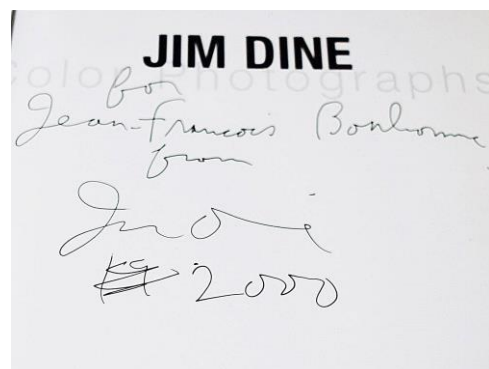 JIM DINE
Color Photographs
for
Jean-Francois Bonhomme
from
Jim Dine
2000